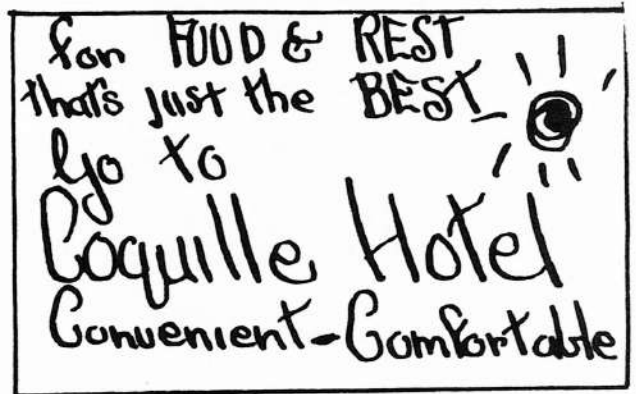 for FOOD & REST
that's just the BEST
Go to
Coquille Hotel
Convenient-Comfortable